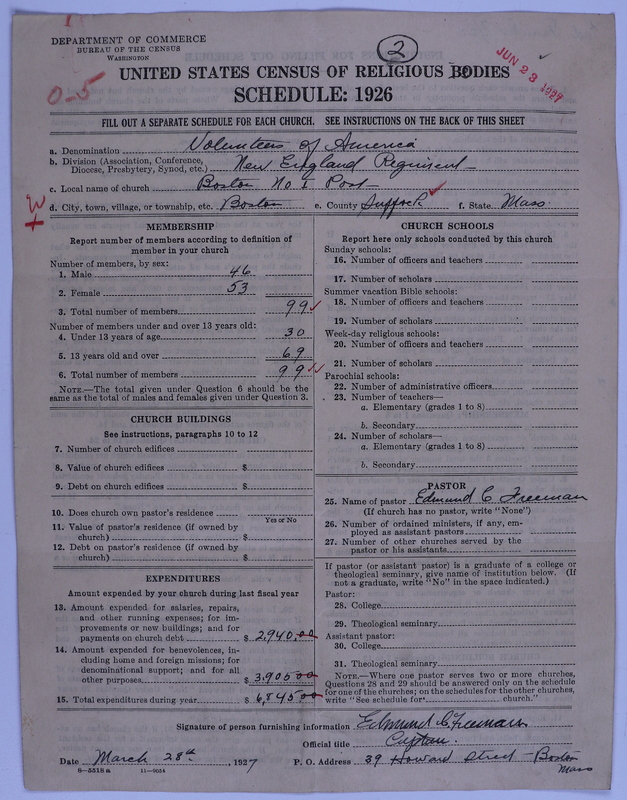 DEPARTMENT OF COMMERCE
BUREAU OF THE CENSUS
WASHINGTON
2
JUN 23 1927
UNITED STATES CENSUS OF RELIGIOUS BODIES
0-5
SCHEDULE: 1926
FILL OUT A SEPARATE SCHEDULE FOR EACH CHURCH. SEE INSTRUCTIONS ON THE BACK OF THIS SHEET
a. Denomination Volunteers of America
b. Division (Association, Conference, Diocese, Presbytery, Synod, etc.) New England Regiment
c. Local name of church Boston No 1 Post
d. City, town, village, or township, etc. Boston e. County Suffock f. State Mass.
MEMBERSHIP
Report number of members according to definition of
member in your church
Number of members, by sex:
1. Male 46
2. Female 53
3. Total number of members 99
Number of members under and over 13 years old:
4. Under 13 years of age 30
5. 13 years old and over 69
6. Total number of members 99
NOTE.—The total given under Question 6 should be the
same as the total of males and females given under Question 3.
CHURCH BUILDINGS
See instructions, paragraphs 10 to 12
7. Number of church edifices
8. Value of church edifices $
9. Debt on church edifices $
10. Does church own pastor's residence
Yes or No
11. Value of pastor's residence (if owned by
church) $
12. Debt on pastor's residence (if owned by
church) $
EXPENDITURES
Amount expended by your church during last fiscal year
13. Amount expended for salaries, repairs,
and other running expenses; for im-
provements or new buildings; and for
payments on church debt $ 2,940.00
14. Amount expended for benevolences, in-
cluding home and foreign missions; for
denominational support; and for all
other purposes $ 3,905 00
15. Total expenditures during year $ 6,845 00
CHURCH SCHOOLS
Report here only schools conducted by this church
Sunday schools:
16. Number of officers and teachers
17. Number of scholars
Summer vacation Bible schools:
18. Number of officers and teachers
19. Number of scholars
Week-day religious schools:
20. Number of officers and teachers
21. Number of scholars
Parochial schools:
22. Number of administrative officers
23. Number of teachers—
a. Elementary (grades 1 to 8)
b. Secondary
24. Number of scholars—
a. Elementary (grades 1 to 8)
b. Secondary
PASTOR
25. Name of pastor Edmund C Freeman
(If church has no pastor, write "None")
26. Number of ordained ministers, if any, em-
ployed as assistant pastors
27. Number of other churches served by the
pastor or his assistants
If pastor (or assistant pastor) is a graduate of a college or
theological seminary, give name of institution below. (If
not a graduate, write "No" in the space indicated.)
Pastor:
28. College
29. Theological seminary
Assistant pastor:
30. College
31. Theological seminary
NOTE.—Where one pastor serves two or more churches,
Questions 28 and 29 should be answered only on the schedule
for one of the churches; on the schedules for the other churches,
write "See schedule for church."
Signature of person furnishing information Edmund C Freeman
Official title Captain.
Date March 28th, 1927 P. O. Address 39 Howard Street - Boston
Mass
8-5518 a 11-9654